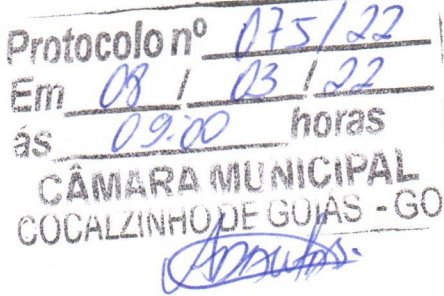 Protocolo nº 075/22
Em 08 / 03 / 22
às 09:00 horas
CÂMARA MUNICIPAL
COCALZINHO DE GOIÁS - GO